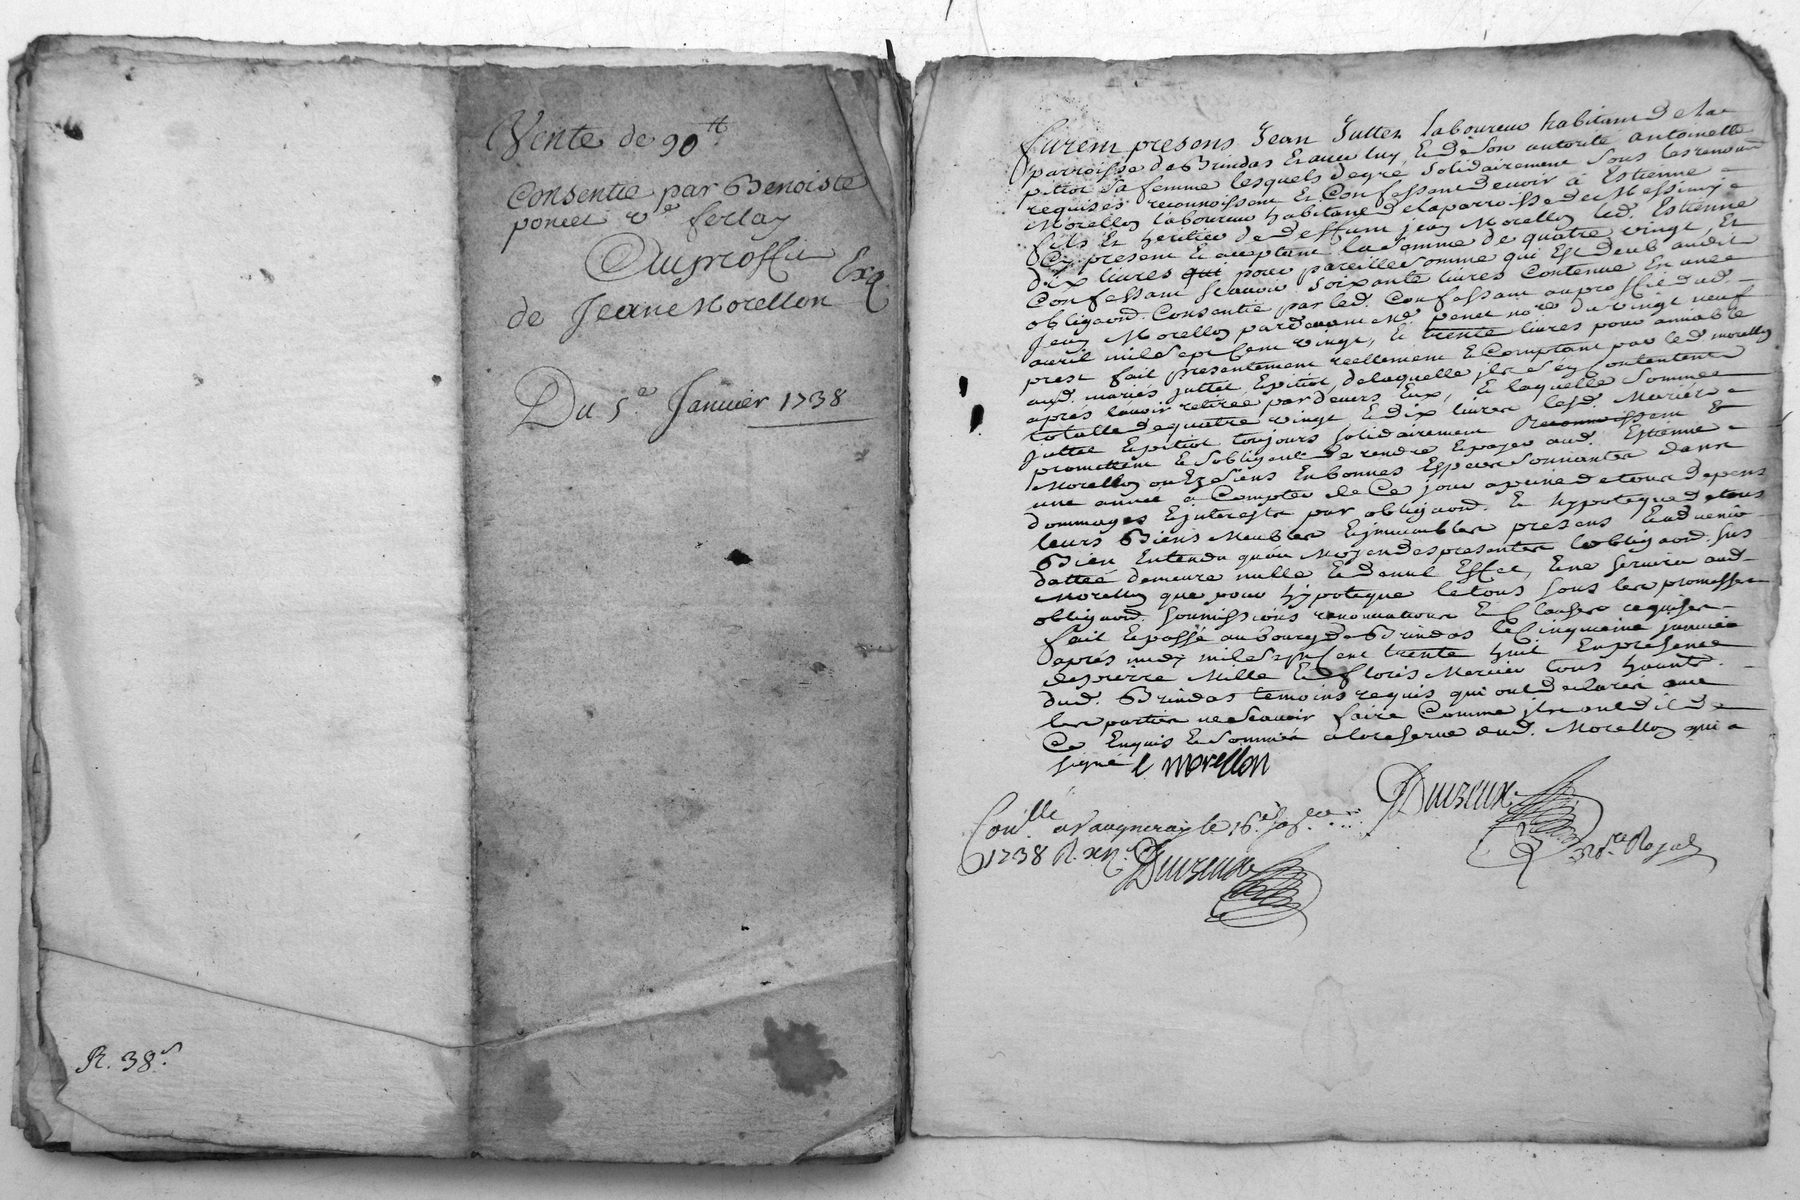 Vente de 90 tt
Consentie par Benoiste
poncet v.e ferlay
Au proffit
Exp.
de Jean Morellon
Du 5.e Janvier 1738
R. 38 s
furent presens Jean Juttet Laboureur habitant de la
parroisse de Brindas Et avec luy, & de Son autorité antoinette
pitiot Sa femme lesquels de gré Solidairement Sous les renon.ons
requises reconnoissent Et Confessent devoir à Estienne
Morellon laboureur habitant de la parroisse de Messimy
fils Et heritier de deffunt jean Morellon led. Estienne
Cy present & acceptant la Somme de quatre vingt, Et
dix livres pour pareille Somme qui Est deub aud.
Confessant Scavoir Soixante livres Contenue En une
obligaon. Consentie par led. Confessant au proffit dud.
Jean Morellon pardevant Me. penet no.re du vingt neuf
avril mil Sept Cent vingt, Et trente livres pour amiable
prest fait presentement reellement & Comptant par led. morellon
aud. mariés juttet & pitiot, de laquelle ils s'en Contentent
après lavoir retirée pardevers Eux, & laquelle Somme
totalle de quatre vingt & dix livres lesd. Mariés
juttet & pitiot toujours Solidairement &
promettent & Sobligent de rendre & payer aud. Estienne
Morellon ou Es Siens En bonnes Especes Sonnantes dans
une année à Compter de Ce jour a peine de tous depens
dommages & interests par obligaon. & hypoteque de tous
leurs Biens Meubles & immeubles presens & advenir
Bien Entendu qu'au Moyen des presentes lobligaon. sus
dattée demeure nulle & de nul Effet, & ne servira aud.
Morellon que pour hypoteque le tous Sous les promesses
obligaon. Soumissions renonciations & Clauses requises
fait & passé au bourg de Brindas le Cinquieme janvier
après midy mil Sept Cent trente huit En presence
de pierre Mille & de floris Mercier tous habitants
dud. Brindas temoins requis qui ont declarés avec
les parties ne Scavoir faire Comme ils ont dit de
Ce Enquis & Sommés à la reserve dud. Morellon qui a
signé E morellon
Con.llé a Vaugneray le 16.e janvier
1738 R. xii s.